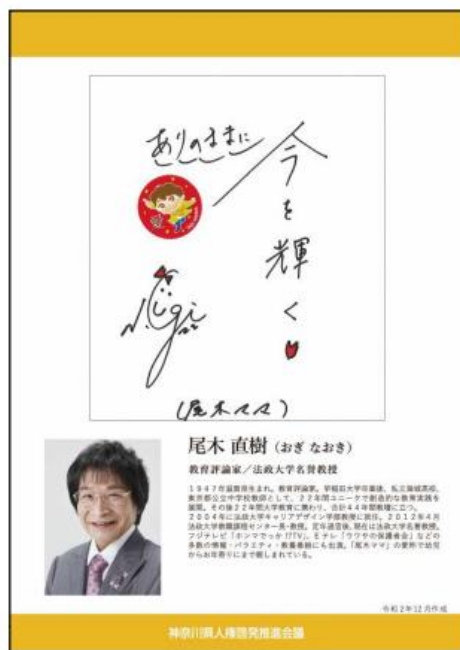 ありのままに
今を輝く
N.Ogi
(尾木ママ)
尾木 直樹(おぎ なおき)
教育評論家/法政大学名誉教授
1947年滋賀県生まれ。教育評論家。早稲田大学卒業後、私立海城高校、
東京都公立中学校教師として、22年間ユニークで創造的な教育実践を
展開。その後22年間大学教育に携わり、合計44年間教壇に立つ。
2004年に法政大学キャリアデザイン学部教授に就任。2012年4月
法政大学教職課程センター長・教授。定年退官後、現在は法政大学名誉教授。
フジテレビ「ホンマでっか!?TV」、Eテレ「ウワサの保護者会」などの
多数の情報・バラエティ・教養番組にも出演。「尾木ママ」の愛称で幼児
からお年寄りにまで親しまれている。
令和2年12月作成
神奈川県人権啓発推進会議